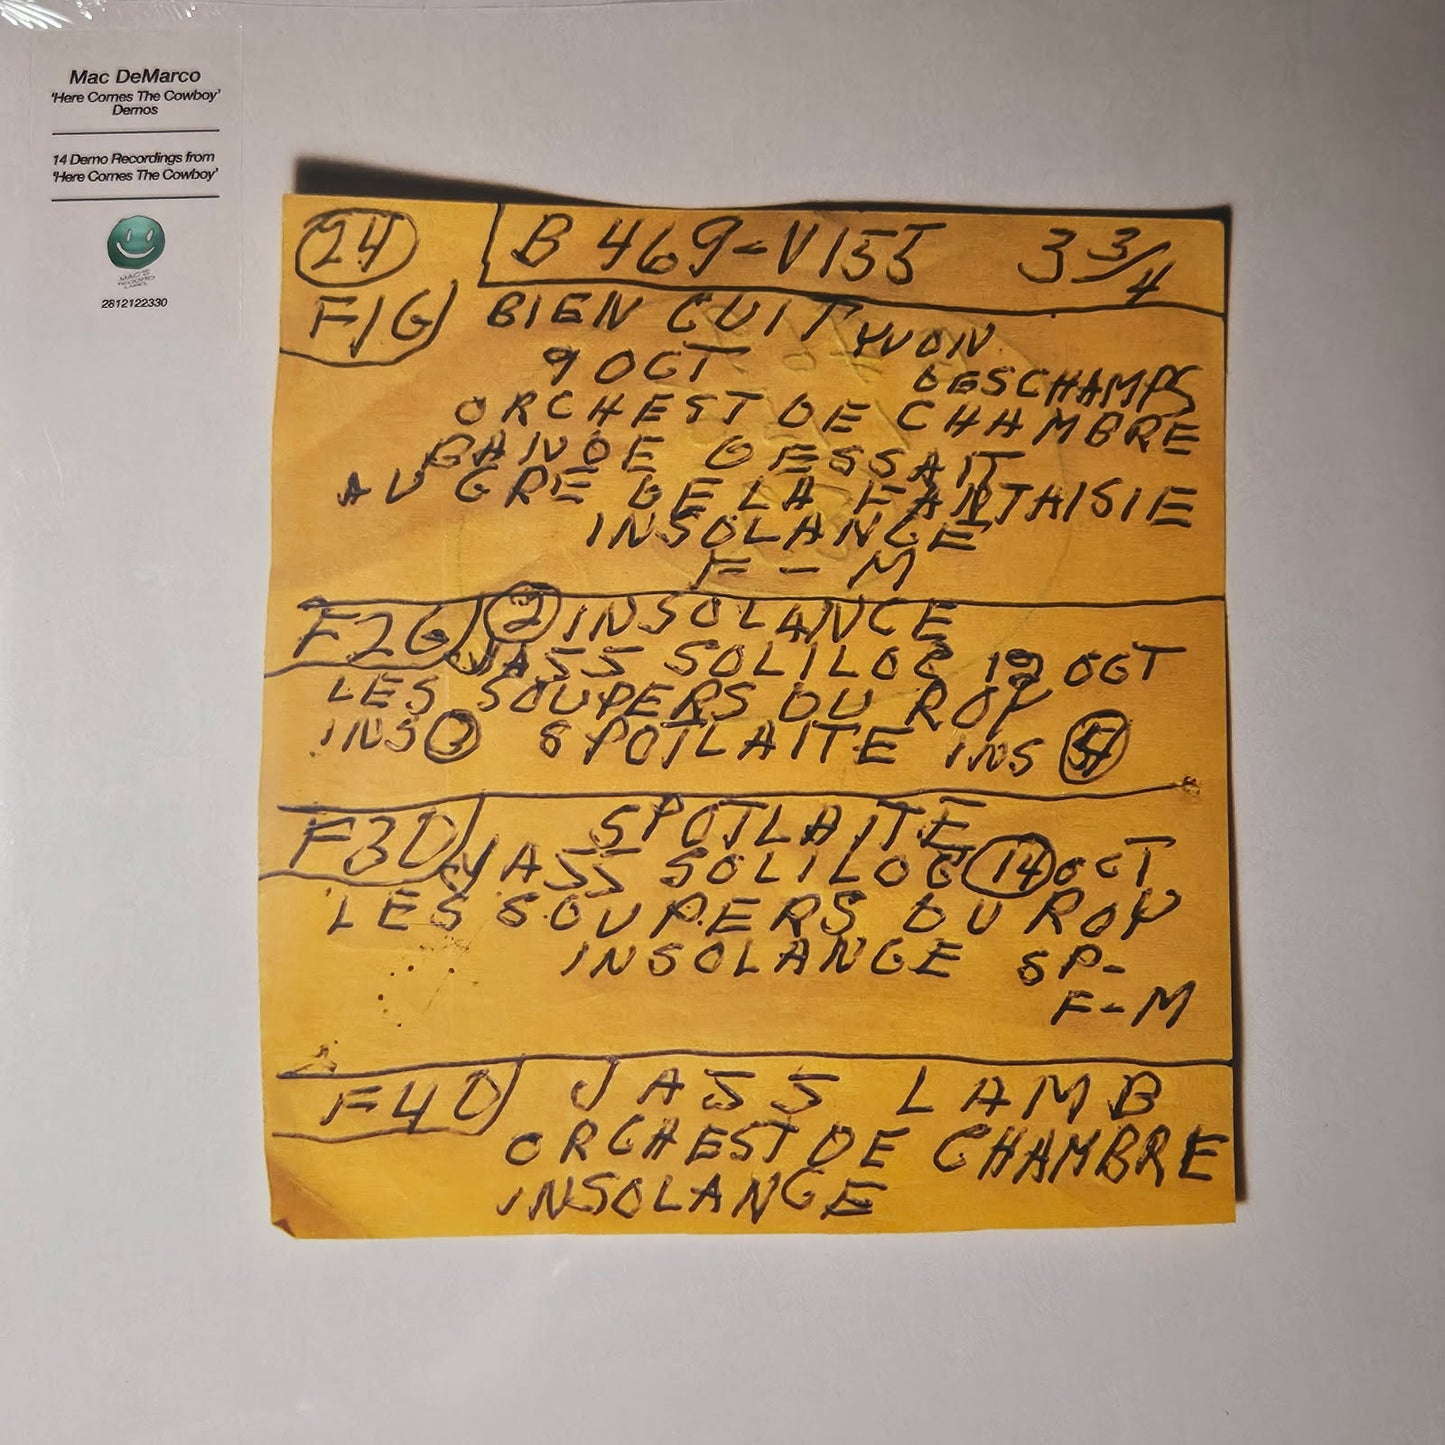 Mac DeMarco
'Here Comes The Cowboy'
Demos
14 Demo Recordings from
'Here Comes The Cowboy'
MAC'S
RECORD
LABEL
2812122330
24 B 469-V155 3 3/4
F1G BIEN CUIT YVON
9 OCT DESCHAMPS
ORCHEST DE CHAMBRE
BANDE D ESSAIT
AU GRE DE LA FANTAISIE
INSOLANCE
F-M
F2G 2 INSOLANCE
JASS SOLILOC 12 OCT
LES SOUPERS DU ROY
INS 3 SPOTLAITE INS
F3D SPOTLAITE
JASS SOLILOC 14 OCT
LES SOUPERS DU ROY
INSOLANCE SP-
F-M
F4D JASS LAMB
ORCHEST DE CHAMBRE
INSOLANCE